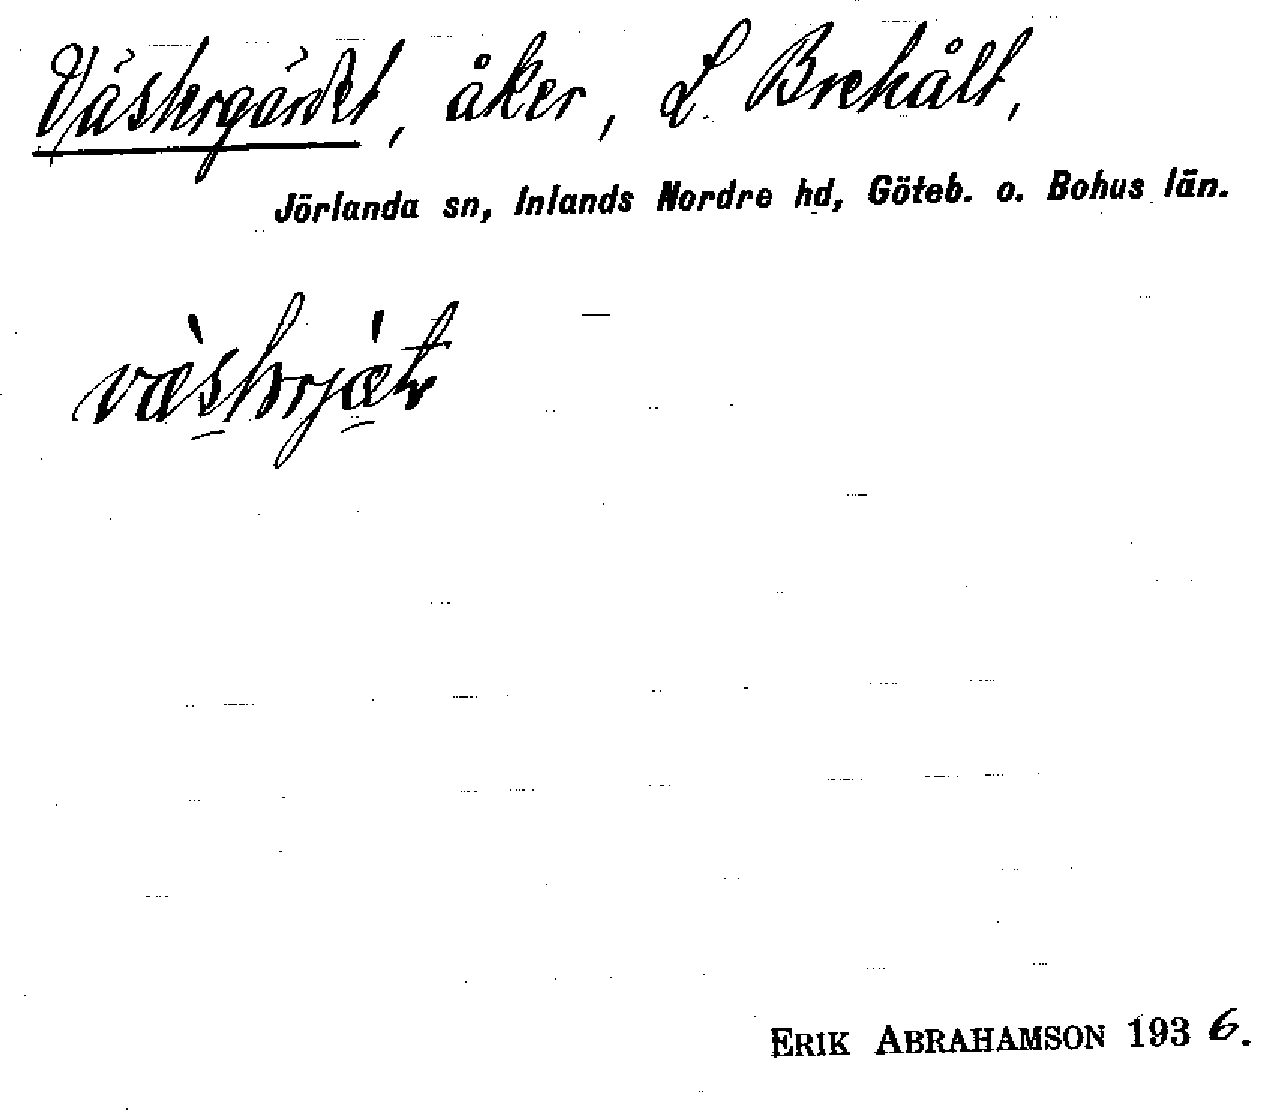 Västergärdet, åker, L. Brehålt,
Jörlanda sn, Inlands Nordre hd, Göteb. o. Bohus län.
ERIK ABRAHAMSON 1936.